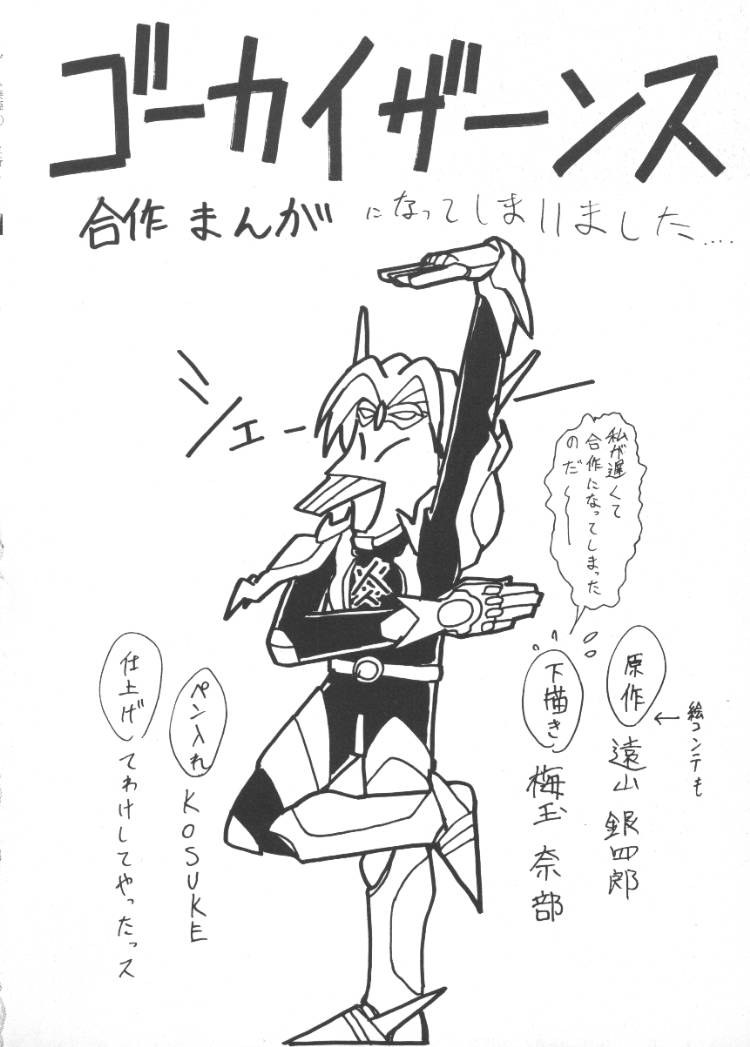 ゴーカイザーンス
合作まんがになってしまいました....
シェー
私が遅くて
合作になってしまった
のだ〜
原作 遠山 銀四郎
← 絵コンテも
下描き 梅玉 奈部
ペン入れ KOSUKE
仕上げ てわけしてやったっス